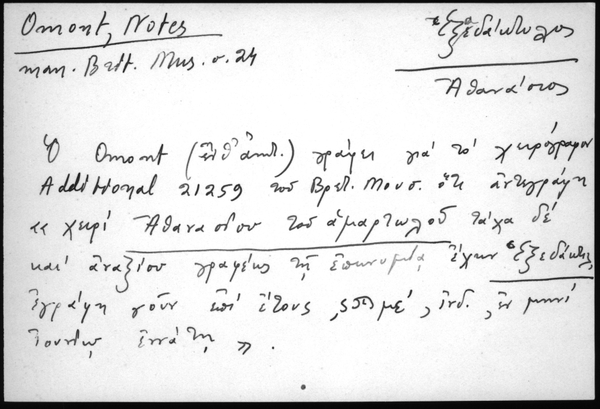 Omont, Notes
man. Brit. Mus. σ. 24
Ἑξεδάκτυλος
Ἀθανάσιος
Ὁ Omont (ἔνθ' ἀνωτ.) γράφει γιά τό χειρόγραφον
Additional 21259 τοῦ Βρετ. Μουσ. ὅτι ἀντεγράφη
«χειρί Ἀθανασίου τοῦ ἁμαρτωλοῦ τάχα δέ
καί ἀναξίου γραφέως τῇ ἐπωνυμίᾳ ἔχων Ἑξεδάκτυλ
ἐγράφη γοῦν ἐπί ἔτους ,ςϡμε', ἰνδ. , ἐν μηνί
Ἰουνίῳ ἐννάτῃ ».